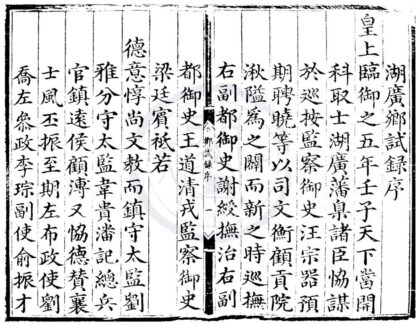 湖廣鄉試録序
皇上臨御之五年壬子天下當開
科取士湖廣藩臬諸臣恊謀
於巡按監察御史汪宗器預
期聘曉等以司文衡顧貢院
湫隘為之闢而新之時巡撫
右副都御史謝綬撫治右副
都御史王道清戎監察御史
梁廷賓祗若
德意惇尚文教而鎮守太監劉
雅分守太監韋貴潘記總兵
官鎮遠侯顧溥又恊德賛襄
士風丕振至期左布政使劉
喬左叅政李琮副使俞振才